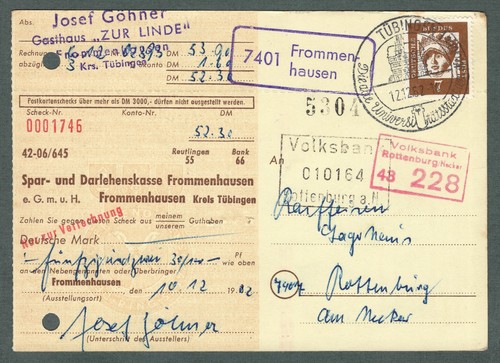 Abs.
Josef Göhner
Gasthaus "ZUR LINDE"
Frommenhausen
Krs. Tübingen
Rechnung
DM 53.90
abzügl.
3
Konto DM 1.60
DM 52.30
Postkartenschecks über mehr als DM 3000,- dürfen nicht ausgestellt werden.
Scheck-Nr.
Konto-Nr.
0001746
DM 52.30
42-06/645
Reutlingen 55
Bank 66
Spar- und Darlehenskasse Frommenhausen
e. G. m. u. H. Frommenhausen Kreis Tübingen
Zahlen Sie gegen diesen Scheck aus meinem/unserem Guthaben
Nur zur Verrechnung
Deutsche Mark
-fünfzigundzwei 30/100-
Pf wie oben
an den Nebengenannten oder Überbringer
Frommenhausen
, den 10.12 19 62
(Ausstellungsort)
Josef Göhner
(Unterschrift des Ausstellers)
7401 Frommen-
hausen
TÜBINGEN
12.12.62
Die alte Universitätsstadt
DEUTSCHE BUNDESPOST
7
5304
An
Volksbank
010164
Rottenburg a.N.
Volksbank
Rottenburg/Neckar
43 228
Raiffeisen
Lagerhaus
Rottenburg
am Neckar